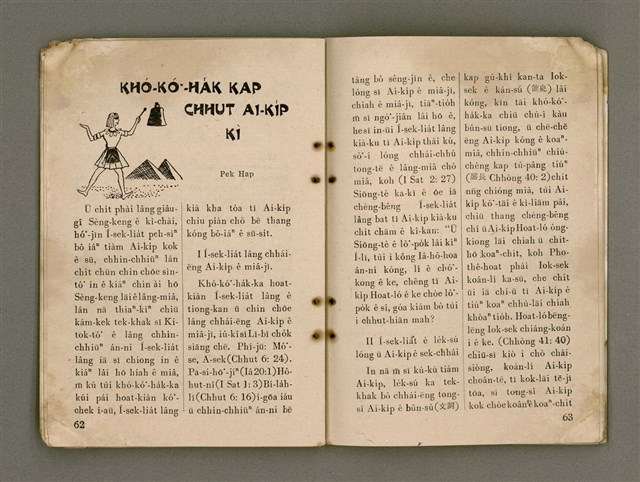 KHÓ-KÓ͘-HA̍K KAP
CHHUT AI-KI̍P
KÌ
Pek Hap
Ū chit phài lâng giâu-
gî Sèng-keng ê kì-chài,
hō͘-jīn Í-sek-lia̍t peh-sìⁿ
bô iáⁿ tiàm Ai-ki̍p kok
ê sū, chhin-chhiūⁿ lán
chit chūn chin chōe sìn-
tô͘ in ê kiáⁿ chin ài hō
Sèng-keng lāi ê lâng-miâ,
lán nā thiaⁿ-kìⁿ chiū
kám-kek tek-khak sī Ki-
tok-tô͘ ê lâng chhin-
chhiūⁿ án-ni Í-sek-lia̍t
lâng iā sī chiong in ê
kiáⁿ lâi hō hiah ê miâ,
m̄ kú tùi khó-kó͘-ha̍k-ka
kúi pái hoat-kiàn kó͘-
chek í-āu, Í-sek-lia̍t lâng
kiâ kha tòa tī Ai-ki̍p
chiu piàn chò bē thang
kóng bô-iáⁿ ê sū-si̍t.
I Í-sek-lia̍t lâng chhái-
ēng Ai-ki̍p ê miâ-jī.
Khó-kó͘-ha̍k-ka hoat-
kiàn Í-sek-lia̍t lâng ê
tiong-kan ū chin chōe
lâng chhái-ēng Ai-ki̍p ê
miâ-jī, iú-kî sī Lī-bī cho̍k
siāng chē. Phì-jū: Mô͘-
se, A-sek(Chhut 6: 24).
Pa-si-hō͘-jíⁿ(Iā20:1)Hô-
hut-nî(I Sat 1: 3)Bí-la̍h-
lī(Chhut 6: 16)í-gōa iáu
ū chhin-chhiūⁿ án-ni bē
62
tàng bô sêng-jīn ê, che
lóng sī Ai-ki̍p ê miâ-jī,
chiah ê miâ-jī, tiāⁿ-tio̍h
m̄ sī ngó͘-jiân lâi hō ê,
he sī in-ūi Í-sek-lia̍t lâng
kiâ-ku tī Ai-ki̍p thài kú,
só͘-í lóng chhái-chhú
tong-tē ê lâng-miâ chò
miâ, koh (I Sat 2: 27)
Siōng-tè ka-kī ê ōe iā
chèng-bêng Í-sek-lia̍t
lâng bat tī Ai-ki̍p kiâ-ku
chit chām ê kì-kan: “Ū
Siōng-tè ê lô͘-po̍k lâi kìⁿ
I-lī, tùi i kóng Iâ-hô-hoa
án-ni kóng, lí ê chó͘-
kong ê ke, chêng tī Ai-
ki̍p Hoat-ló ê ke chòe lô͘-
po̍k ê sî, góa kiám bô tùi
i chhut-hiān mah?
II Í-sek-lia̍t ê le̍k-sú
lóng ū Ai-ki̍p ê sek-chhái
In nā m̄ sī kú-kú tiàm
Ai-ki̍p, le̍k-sú ka tek-
khak bô chhái-ēng tong-
sî Ai-ki̍p ê bûn-sû(文詞)
kap gú-khì kan-ta Iok-
sek ê kàn-sú (諫史) lâi
kóng, kīn tāi khó-kó͘-
ha̍k-ka chiū chù-ì kàu
bûn-sû tiong, ū chē-chē
ēng Ai-ki̍p kóng ê koaⁿ-
miâ, chhin-chhiūⁿ chiú-
chèng kap tú-pâng tiúⁿ
(膳長 Chhòng 40: 2)chit
nn̄g chióng miâ, tùi Ai-
ki̍p kó͘-tāi ê kì-liām pâi,
chiū thang chèng-bêng
chí ū Ai-ki̍p Hoat-ló ông-
kiong lāi chiah ū chit-
hō koaⁿ-chit, koh Pho-
thê-hoat phài Iok-sek
koán-lí ka-su, che chit
ūi iā chí-ū tī Ai-ki̍p ê
tiúⁿ koaⁿ chhù-lāi chiah
khòaⁿ tio̍h. Hoat-ló bēng-
lēng Iok-sek chiáng-koán
i ê ke. (Chhòng 41: 40)
chiū-sī kiò i chò chái-
siòng, koán-lí Ai-ki̍p
choân-tē, tī kok-lāi tē-jī
tōa, sī tong-sî Ai-ki̍p
kok chòe koân ê koaⁿ-chit
63